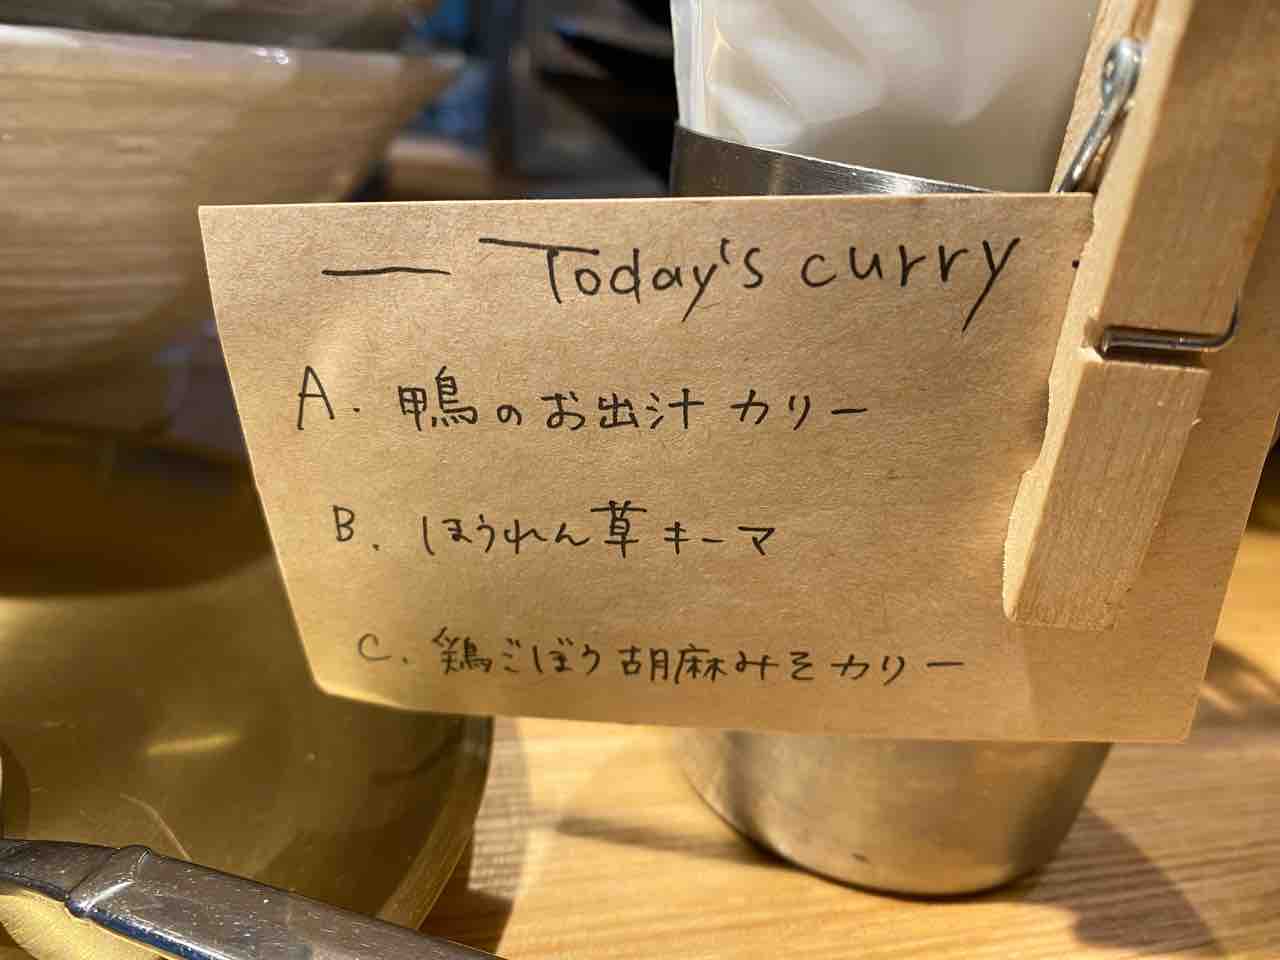 — Today's curry
A. 鴨のお出汁カリー
B. ほうれん草キーマ
C. 鶏ごぼう胡麻みそカリー